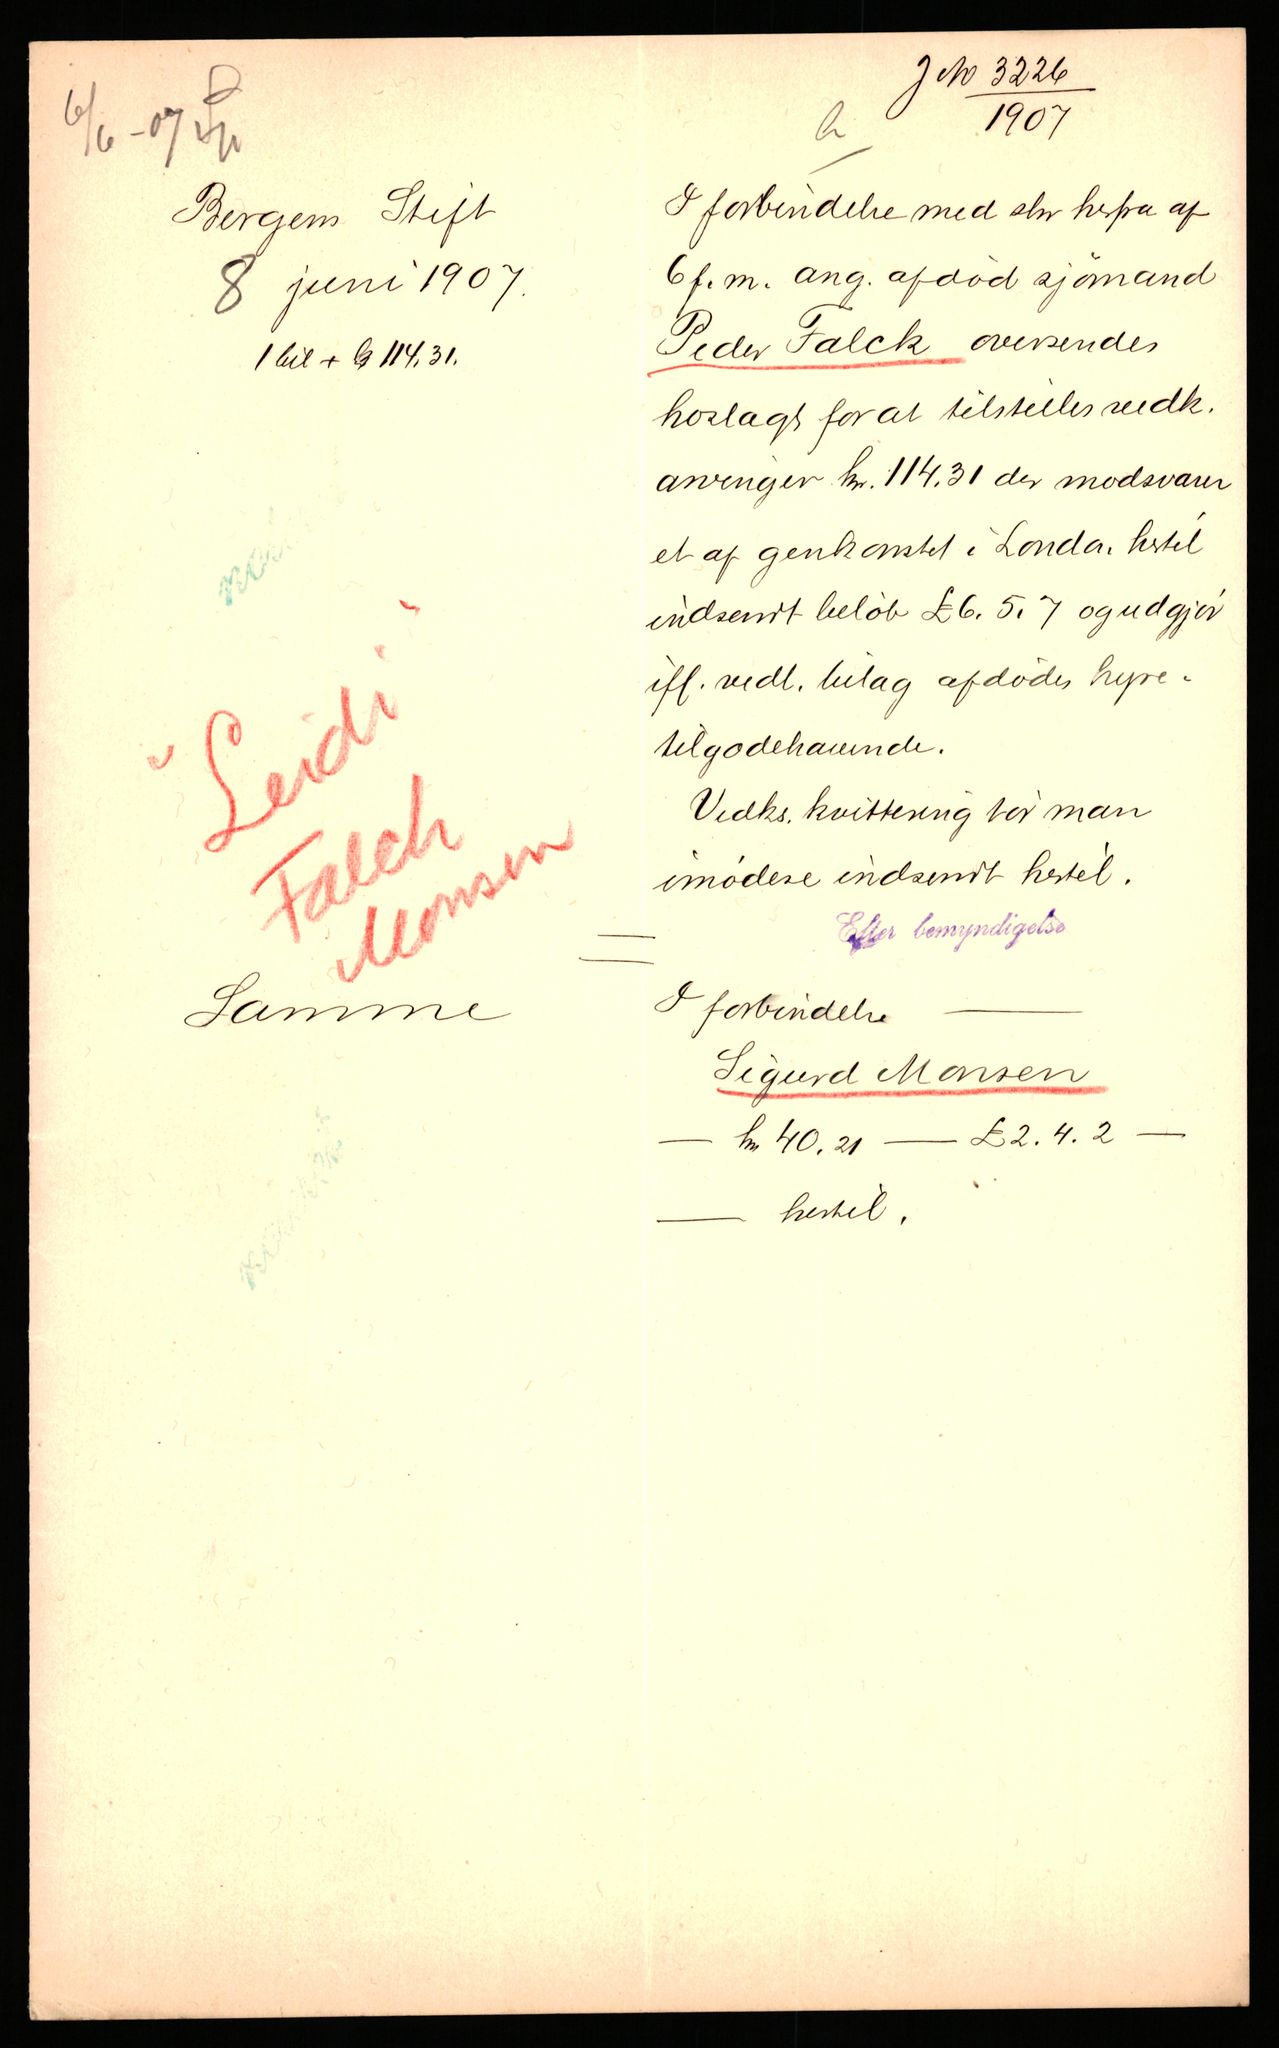 J № 3226
1907
6/6 - 07
Bergens Stift
8 juni 1907.
1 bil + kr 114.31.
I forbindelse med skr herfra af
6 f. m. ang. afdöd sjömand
Peder Falck oversendes
hoslagt for at tilstilles vedk.
arvinger kr. 114.31 der modsvarer
et af genkonstet i London hertil
indsendt belöb £6. 5. 7 og udgjör
ifl. vedl. bilag afdödes hyre-
tilgodehavende.
Vedks. kvittering tör man
imödese indsendt hertil.
Efter bemyndigelse
"Leidi"
Falch
Monsen
Samme
I forbindelse —
Sigurd Monsen
— kr 40.21 — £2. 4. 2 —
— hertil.